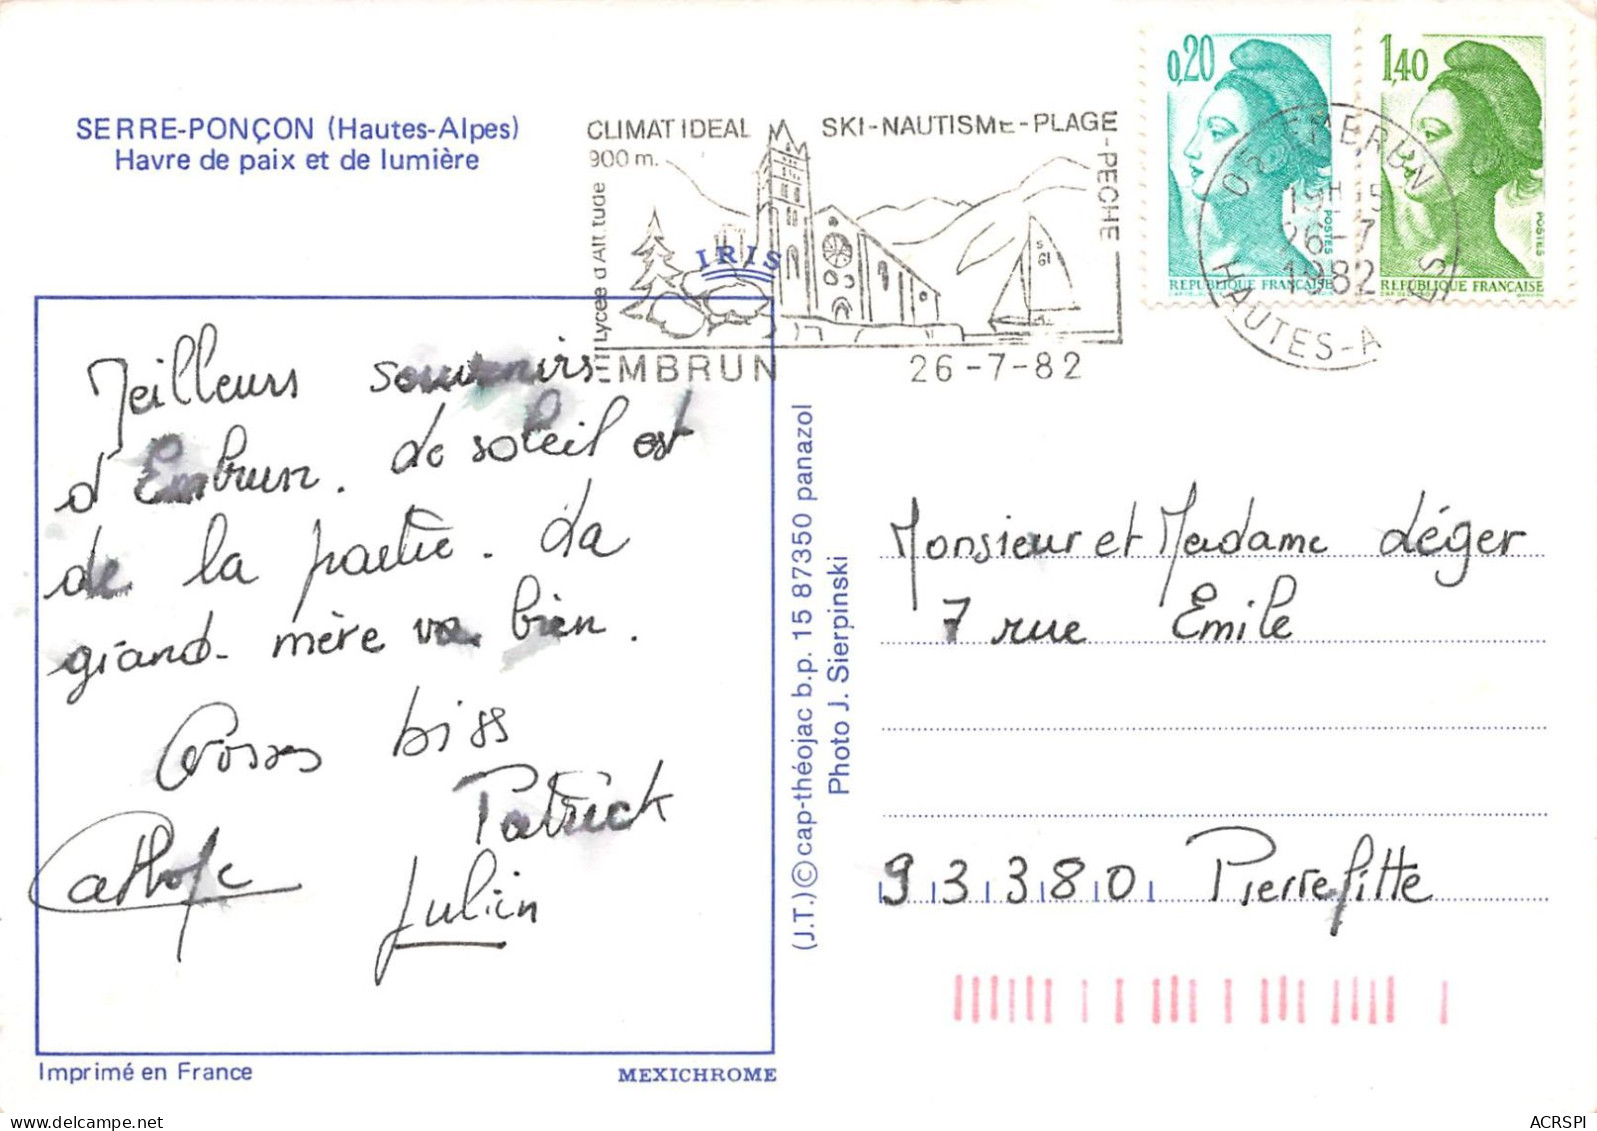 SERRE-PONÇON (Hautes-Alpes)
Havre de paix et de lumière
CLIMAT IDEAL
900 m.
SKI-NAUTISME-PLAGE
-PECHE
Lycée d'Altitude
IRIS
S
61
EMBRUN
26-7-82
0,20
POSTES
REPUBLIQUE FRANÇAISE
1,40
POSTES
REPUBLIQUE FRANÇAISE
05 EMBRUN
19H15
26-7
1982
HAUTES-A S
Meilleurs souvenirs
d'Embrun. Le soleil est
de la partie. La
grand-mère va bien.
Grosses biss
Patrick
Julien
Monsieur et Madame Léger
7 rue Emile
93380 Pierrefitte
(J.T.) © cap-théojac b.p. 15 87350 panazol
Photo J. Sierpinski
Imprimé en France
MEXICHROME
ACRSPI